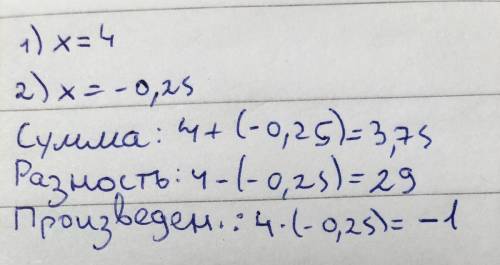 1) x=4
2) x=-0,25
Сумма: 4+(-0,25)=3,75
Разность: 4-(-0,25)=29
Произведен.: 4·(-0,25)=-1